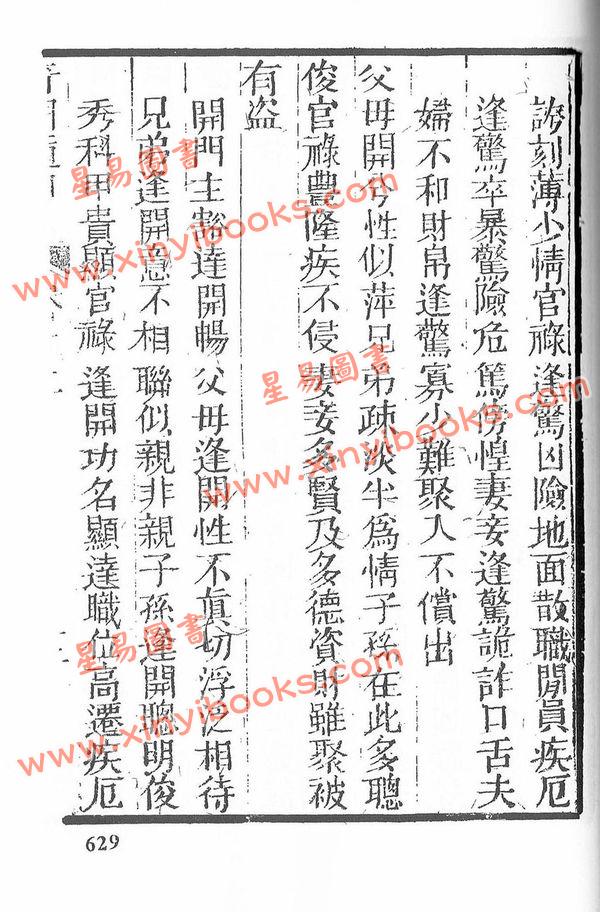 謗刻薄少情官祿逢驚凶險地面散職閒員疾厄
逢驚卒暴驚險危篤徬惶妻妾逢驚詭詐口舌夫
婦不和財帛逢驚寡少難聚人不償出
父母開兮性似萍兄弟疎淡半爲情子孫在此多聰
俊官祿豊隆疾不侵妻妾多賢及多德資財雖聚被
有盜
開門主豁達開暢父母逢開性不眞切浮泛相待
兄弟逢開忽不相聯似親非親子孫逢開聰明俊
秀科甲貴顯官祿逢開功名顯達職位高遷疾厄
629
星易圖書
www.xinyibooks.com
星易圖書
www.xinyibooks.com
星易圖書
www.xinyibooks.com